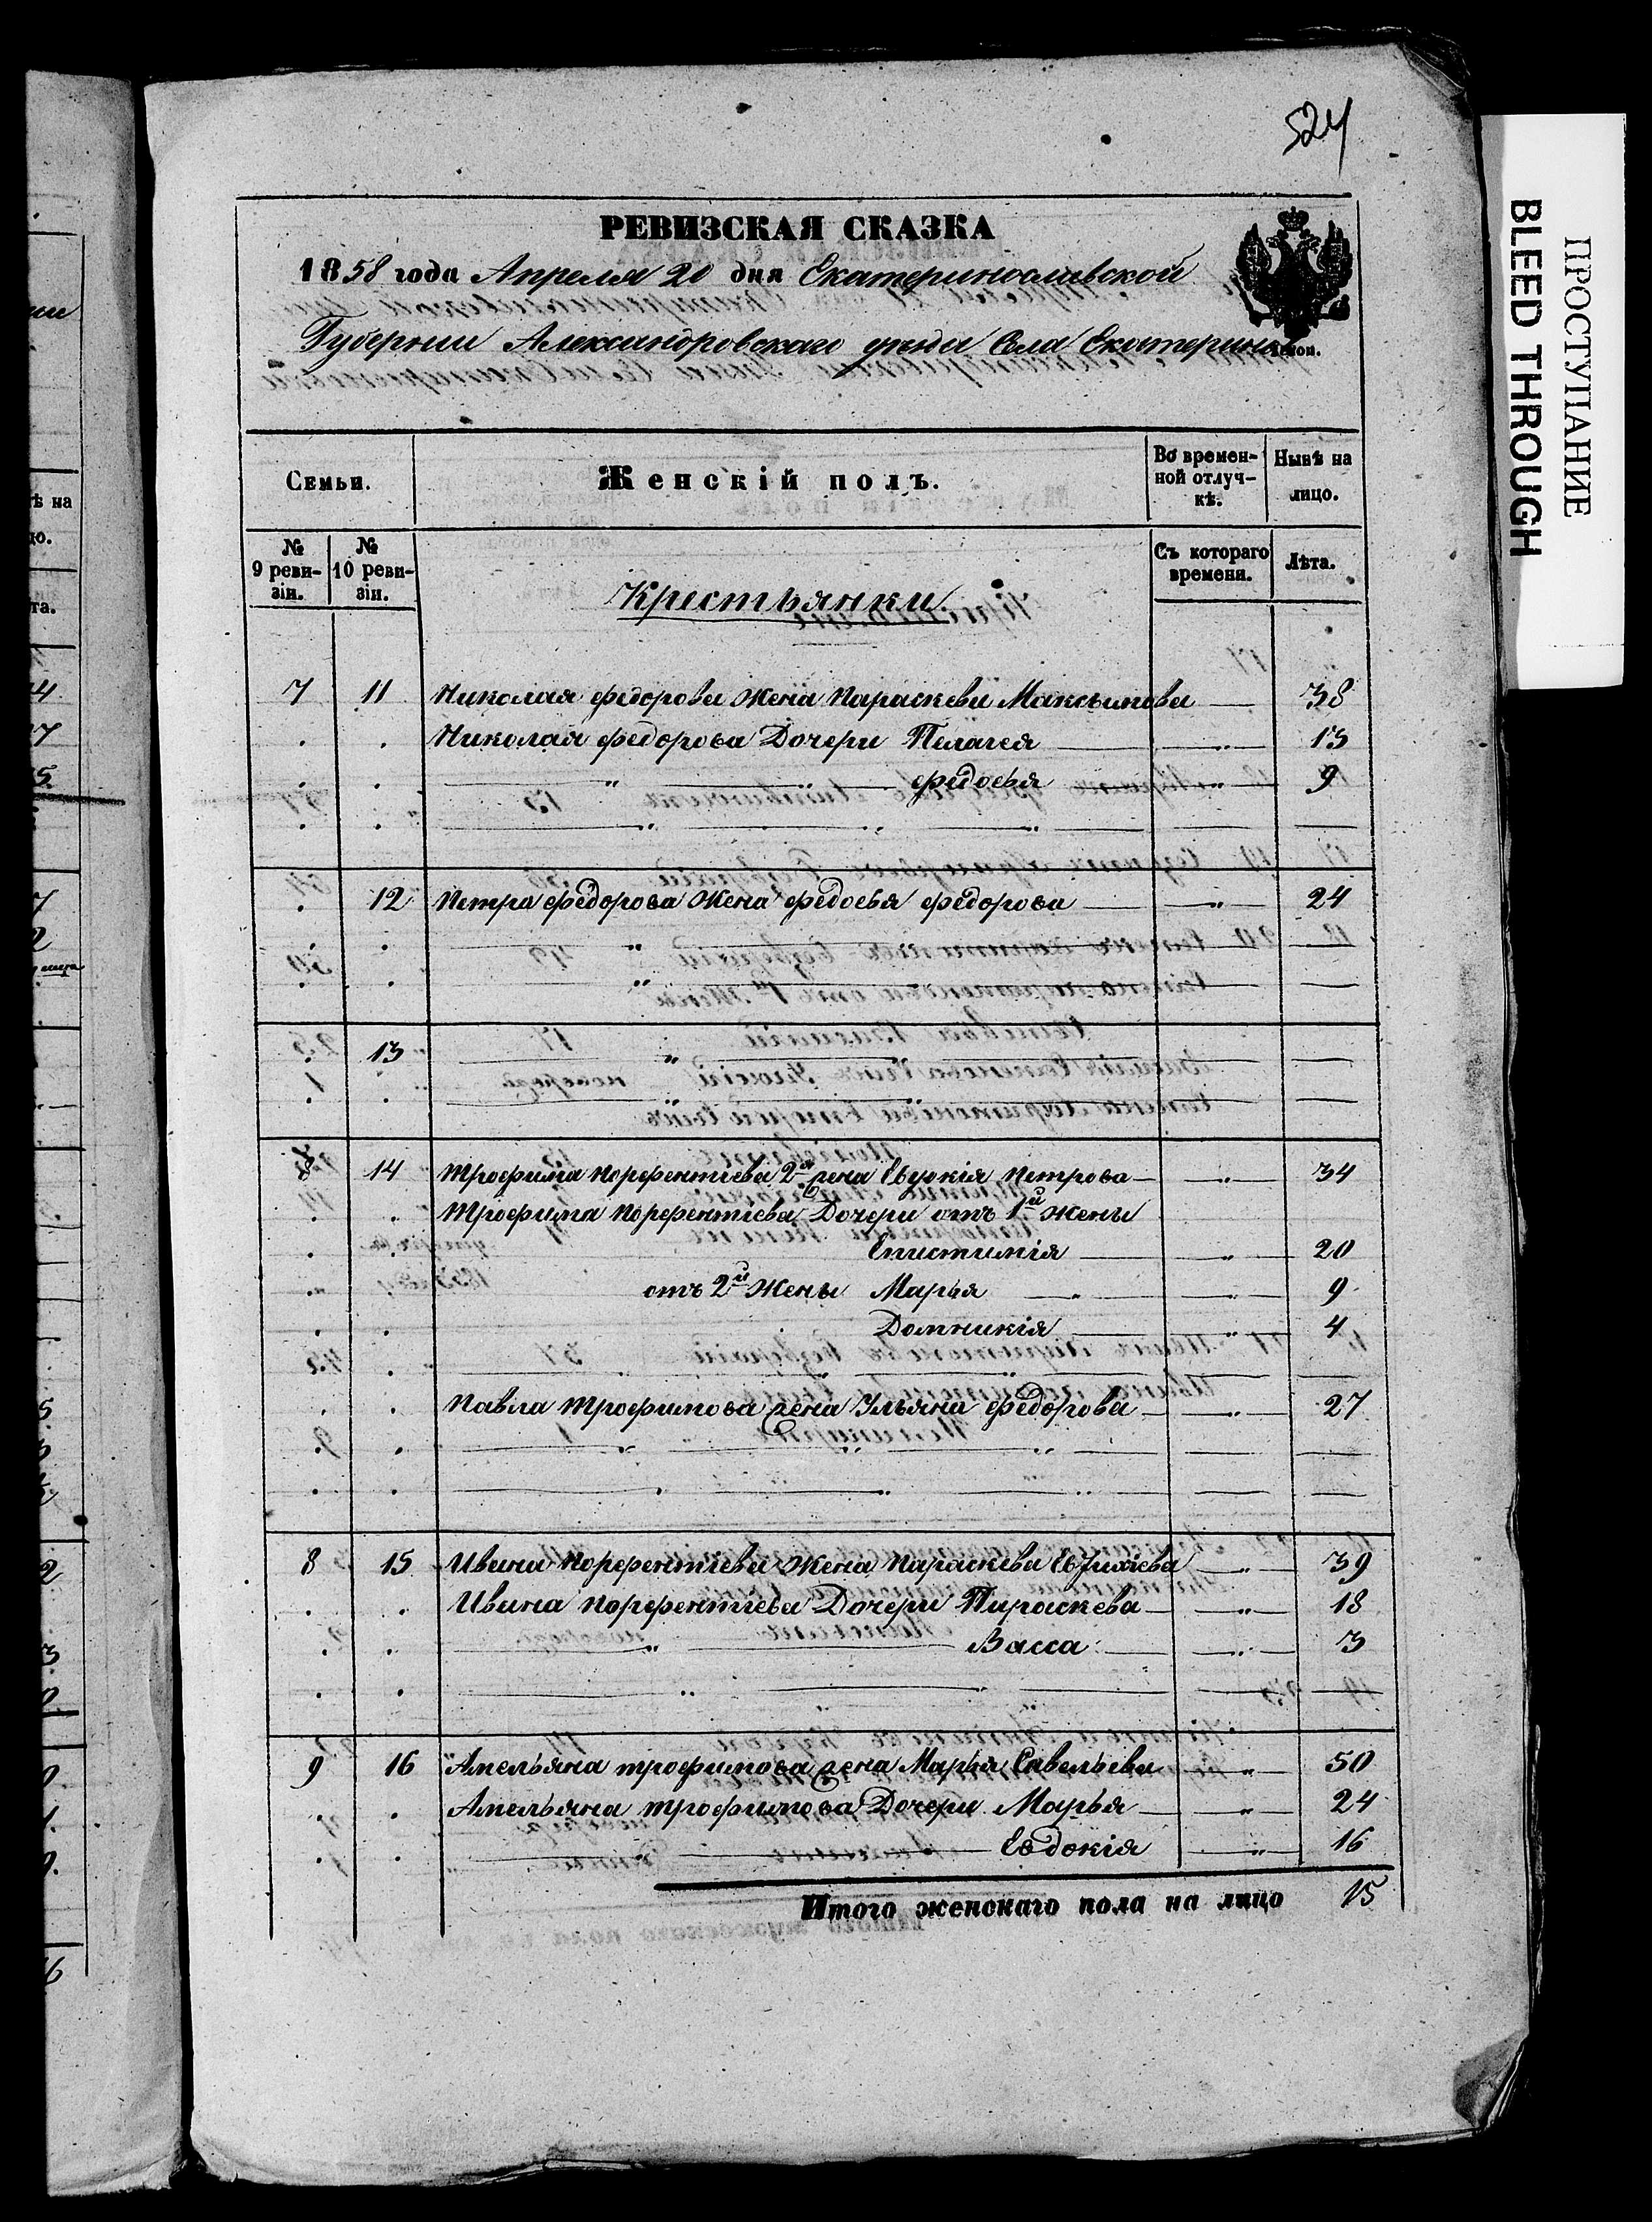 524
РЕВИЗСКАЯ СКАЗКА
1858 года Апреля 20 дня Екатеринославской
Губернии Александровскаго уезда Села Екатерин
Семьи.
Женскій полъ.
Во времен-
ной отлуч-
кѣ.
Нынѣ на
лицо.
№
9 реви-
зіи.
№
10 реви-
зіи.
Крестьянки
Съ котораго
времени.
Лѣта.
7 11 Николая Федорова Жена Параскева Максимова 38
Николая Федорова Дочери Пелагея " 13
" Федосья " 9
12 Петра Федорова Жена Федосья Федорова " 24
13
8 14 Трофима Порфентіева 2я жена Евдокія Петрова " 34
Трофима Порфентіева Дочери отъ 1й Жены
Епистимія " 20
отъ 2й Жены Марья " 9
Домникія " 4
Павла Трофимова жена Ульяна Федорова " 27
8 15 Ивана Порфентіева Жена Параскева " 39
Ивана Порфентіева Дочери Параскева " 18
" Васса " 3
9 16 Амельяна трофимова жена Марья Савельева " 50
Амельяна трофимова Дочери Марья " 24
" Евдокія " 16
Итого женскаго пола на лицо 15
ПРОСТУПАНИЕ
BLEED THROUGH